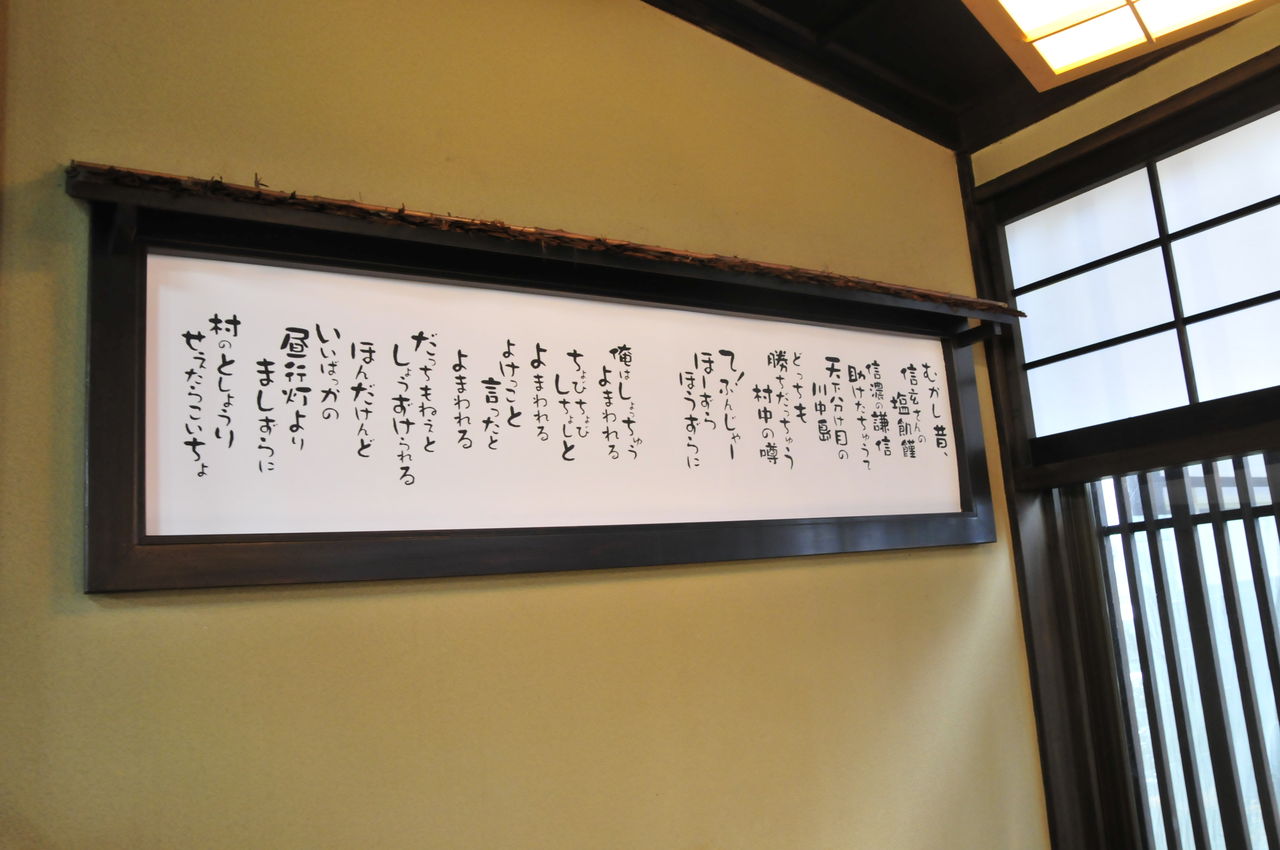 むかし昔、
信玄さんの
塩飢饉
信濃の謙信
助けたちゅうて
天下分け目の
川中島
どっちも
勝ちだっちゅう
村中の噂
て!ふんじゃー
ほーずら
ほうずらに
俺はしょっちゅう
よまわれる
ちょびちょび
しちょしと
よまわれる
よけっこと
言ったと
よまわれる
だっちもねえと
しょうずけられる
ほんだけんど
いいばっかの
昼行灯より
ましずらに
村のとしょうり
せえたらこいちょ